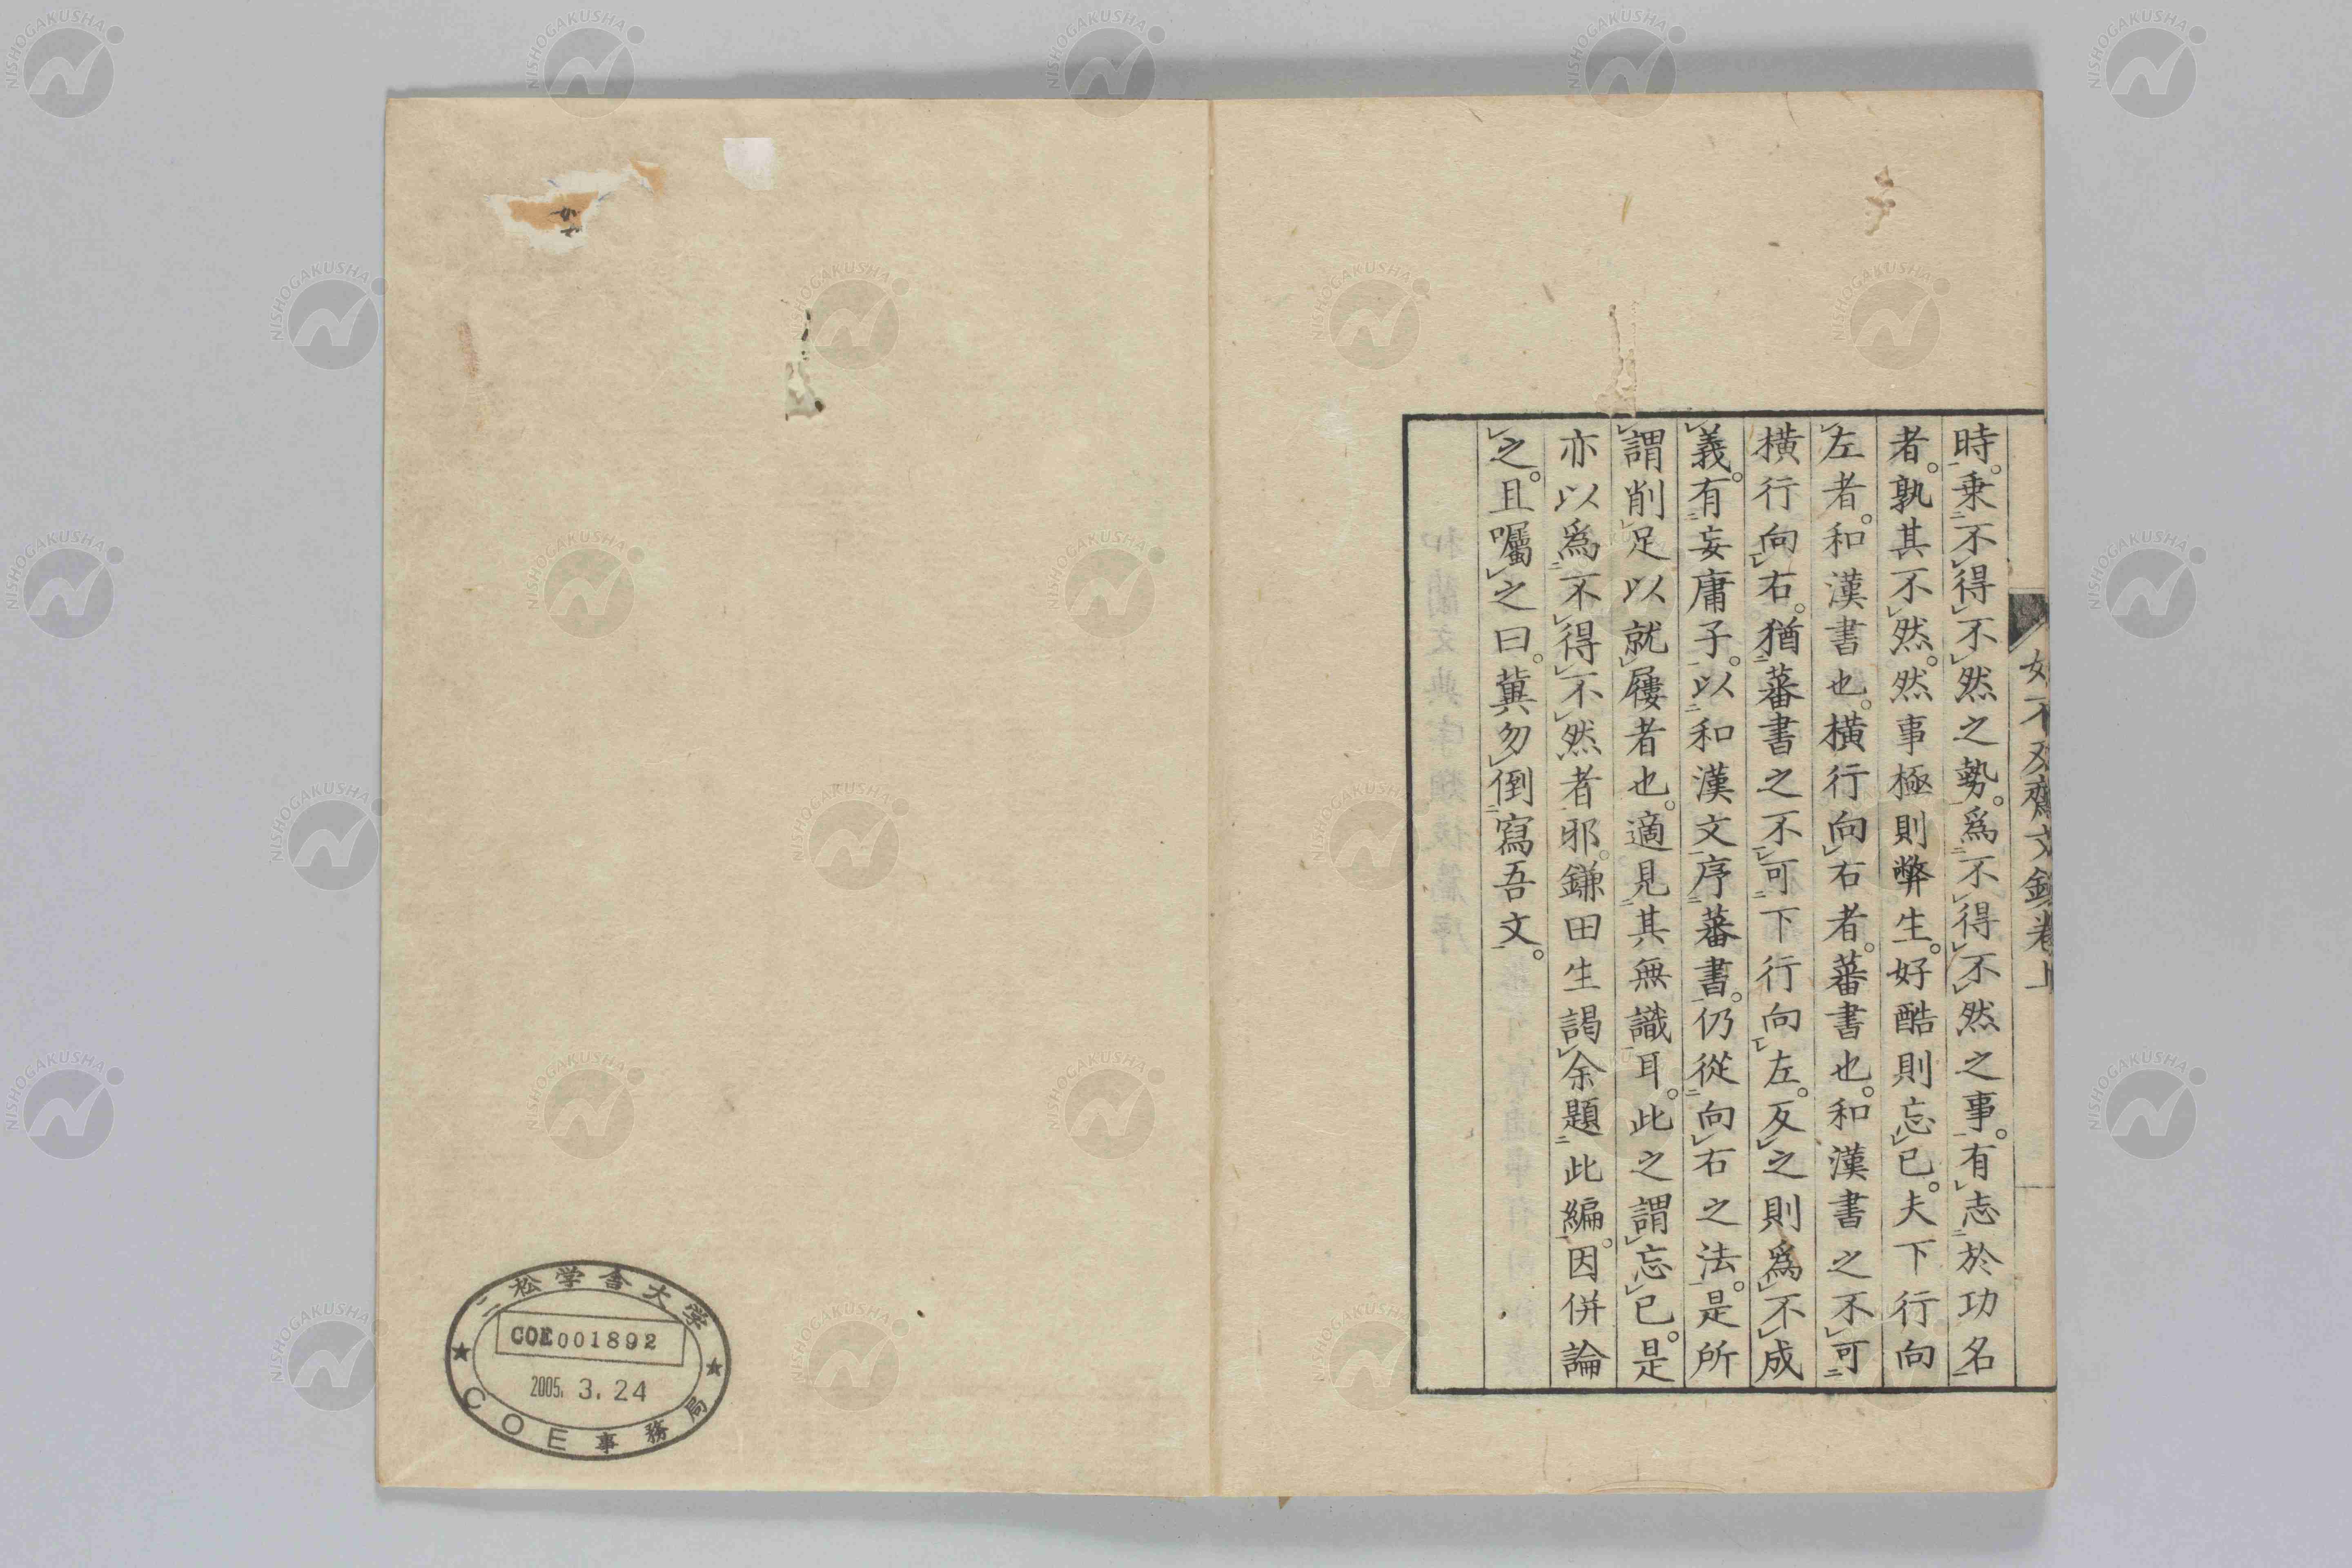 如不及齋文鈔卷上
時。乗不得不然之勢。爲不得不然之事。有志於功名
者。孰其不然。然事極則弊生。好酷則忘已。夫下行向
左者。和漢書也。橫行向右者。蕃書也。和漢書之不可
橫行向右。猶蕃書之不可下行向左。反之則爲不成
義。有妄庸子。以和漢文序蕃書。仍從向右之法。是所
謂削足以就屨者也。適見其無識耳。此之謂忘已。是
亦以爲不得不然者邪。鎌田生謁余題此編。因併論
之。且囑之曰。冀勿倒寫吾文。
二松学舎大学
COE001892
2005. 3. 24
COE事務局
NISHOGAKUSHA